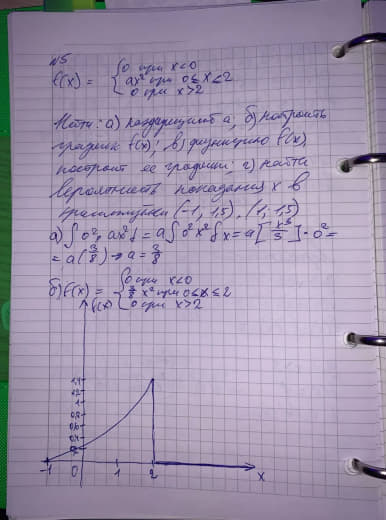 №5
f(x) = { 0 при x<0
ax² при 0≤x≤2
0 при x>2
Найти: а) коэффициент а, б) построить
график f(x); в) функцию f(x),
построить ее график; г) найти
вероятность попадания x в
промежутки (-1, 1,5), (1, 1,5)
= a(8/3) → a = 3/8
б) f(x) = { 0 при x<0
3/8 x² при 0≤x≤2
0 при x>2
f(x)
1,4
1,2
1
0,8
0,6
0,4
-1 0 1 2 x